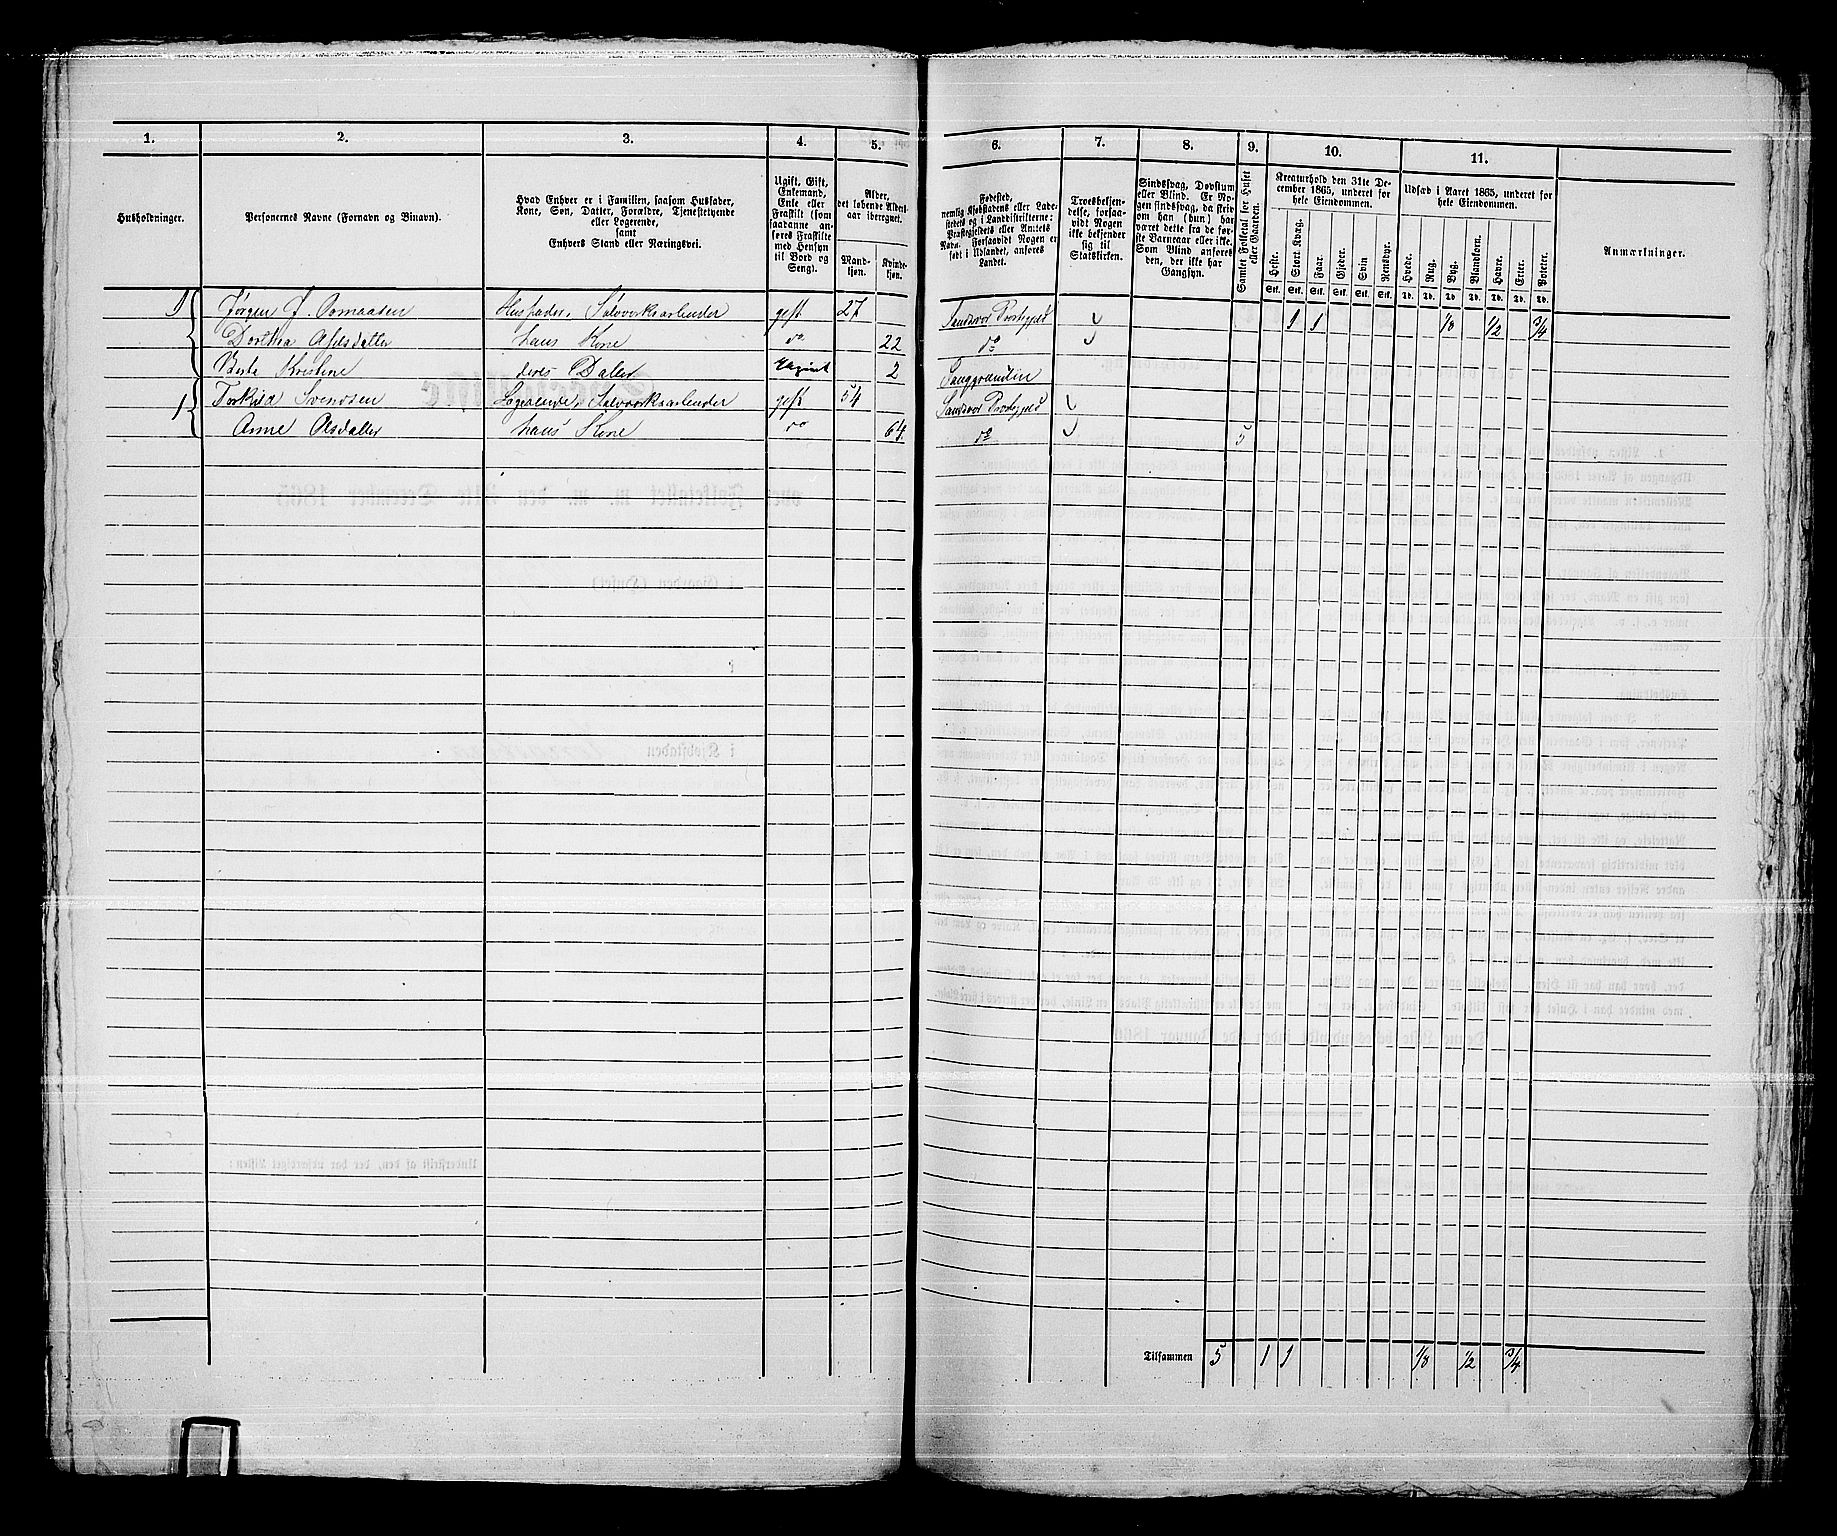 1. 2. 3. 4. 5.
Husholdninger.
Personernes Navne (Fornavn og Binavn).
Hvad Enhver er i Familien, saasom Husfader,
Kone, Søn, Datter, Forældre, Tjenestetyende
eller Logerende,
samt
Enhvers Stand eller Næringsvei.
Ugift, Gift,
Enkemand,
Enke eller
Fraskilt (som
saadanne an-
føres Fraskilte
med Hensyn
til Bord og
Seng).
Alder,
det løbende Alders-
aar iberegnet.
Mand-
kjøn.
Kvinde-
kjøn.
1 Jørgen J. Husfader, gift 27
Dorthea hans Kone do 22
Kristine deres Datter Ugivt 2
1 Torkild Svendsen Logerende, gift 54
Anne Olsdatter hans Kone do 64
6. 7. 8. 9. 10. 11.
Fødested,
nemlig Kjøbstadens eller Lade-
stedets og i Landdistrikterne:
Præstegjeldets eller Amtets
Navn. Forsaavidt Nogen er
født i Udlandet, anføres
Landet.
Troesbekjen-
delse, forsaa-
vidt Nogen
ikke bekjender
sig til
Statskirken.
Sindssvag, Døvstum
eller Blind. Er No-
gen sindssvag, da skri-
ves om han (hun) har
været dette fra de før-
ste Barneaar eller ikke.
Som Blind anføres
den, der ikke har
Gangsyn.
Samlet Folketal for Huset
eller Gaarden.
Kreaturhold den 31te De-
cember 1865, underet for
hele Eiendommen.
Heste. Stort Kvæg. Faar. Gjeder. Svin Rensdyr.
Stk. Stk. Stk. Stk. Stk. Stk.
Udsæd i Aaret 1865, underet for
hele Eiendommen.
Hvede. Rug. Byg. Blandkorn. Havre. Erter. Poteter.
Td. Td. Td. Td. Td. Td. Td.
Anmærkninger.
1 1 1/8 1/2 3/4
do
do 5
Tilsammen 5 1 1 1/8 1/2 3/4